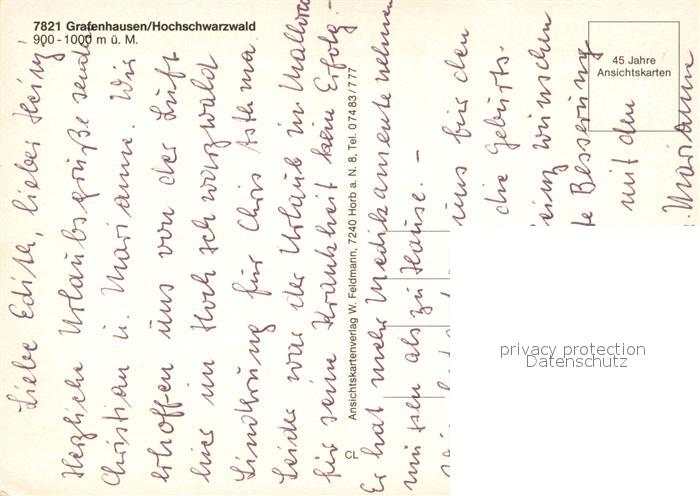 7821 Grafenhausen/Hochschwarzwald
900 - 1000 m ü. M.
45 Jahre
Ansichtskarten
Liebe Edith, lieber Heinz
Herzliche Urlaubsgrüße senden
Christian u. Marianne. Wir
erhoffen uns von der Luft
hier im Hochschwarzwald
Linderung für Chris Asthma
Leider war der Urlaub in
für seine Krankheit kein Erfolg. –
Er hat mehr Medikamente nehmen
müssen als zu Hause. –
uns für den
die Geburts-
wünschen
Besserung
mit den
Marianne
Ansichtskartenverlag W. Feldmann, 7240 Horb a. N. 8, Tel. 0 74 83 / 7 77
CL
privacy protection
Datenschutz